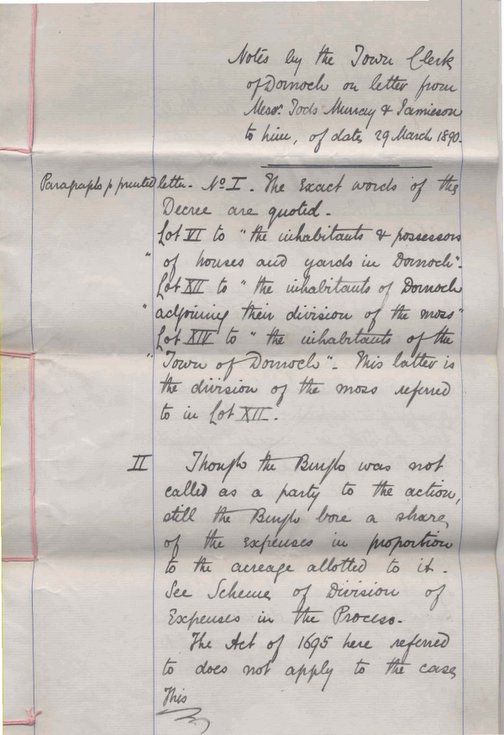 Notes by the Town Clerk
of Dornoch on letter from
Messrs. Tods Murray & Jamieson
to him, of date 29 March 1890.
Paragraphs p printed letter. No. I. The Exact words of the
Decree are quoted.
Lot VI to "the inhabitants & possessors
" of houses and yards in Dornoch".
Lot XII to "the inhabitants of Dornoch
" adjoining their division of the moss"
Lot XIV to "the inhabitants of the
" Town of Dornoch". This latter is
the division of the moss referred
to in Lot XII.
II Though the Burgh was not
called as a party to the action,
still the Burgh bore a share
of the expenses in proportion
to the acreage allotted to it.
See Scheme of Division of
Expenses in the Process.
The Act of 1695 here referred
to does not apply to the case,
This